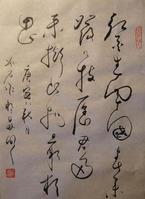 红豆生南國春来
發几枝愿君多
采撷此物最相
思 庚寅秋月